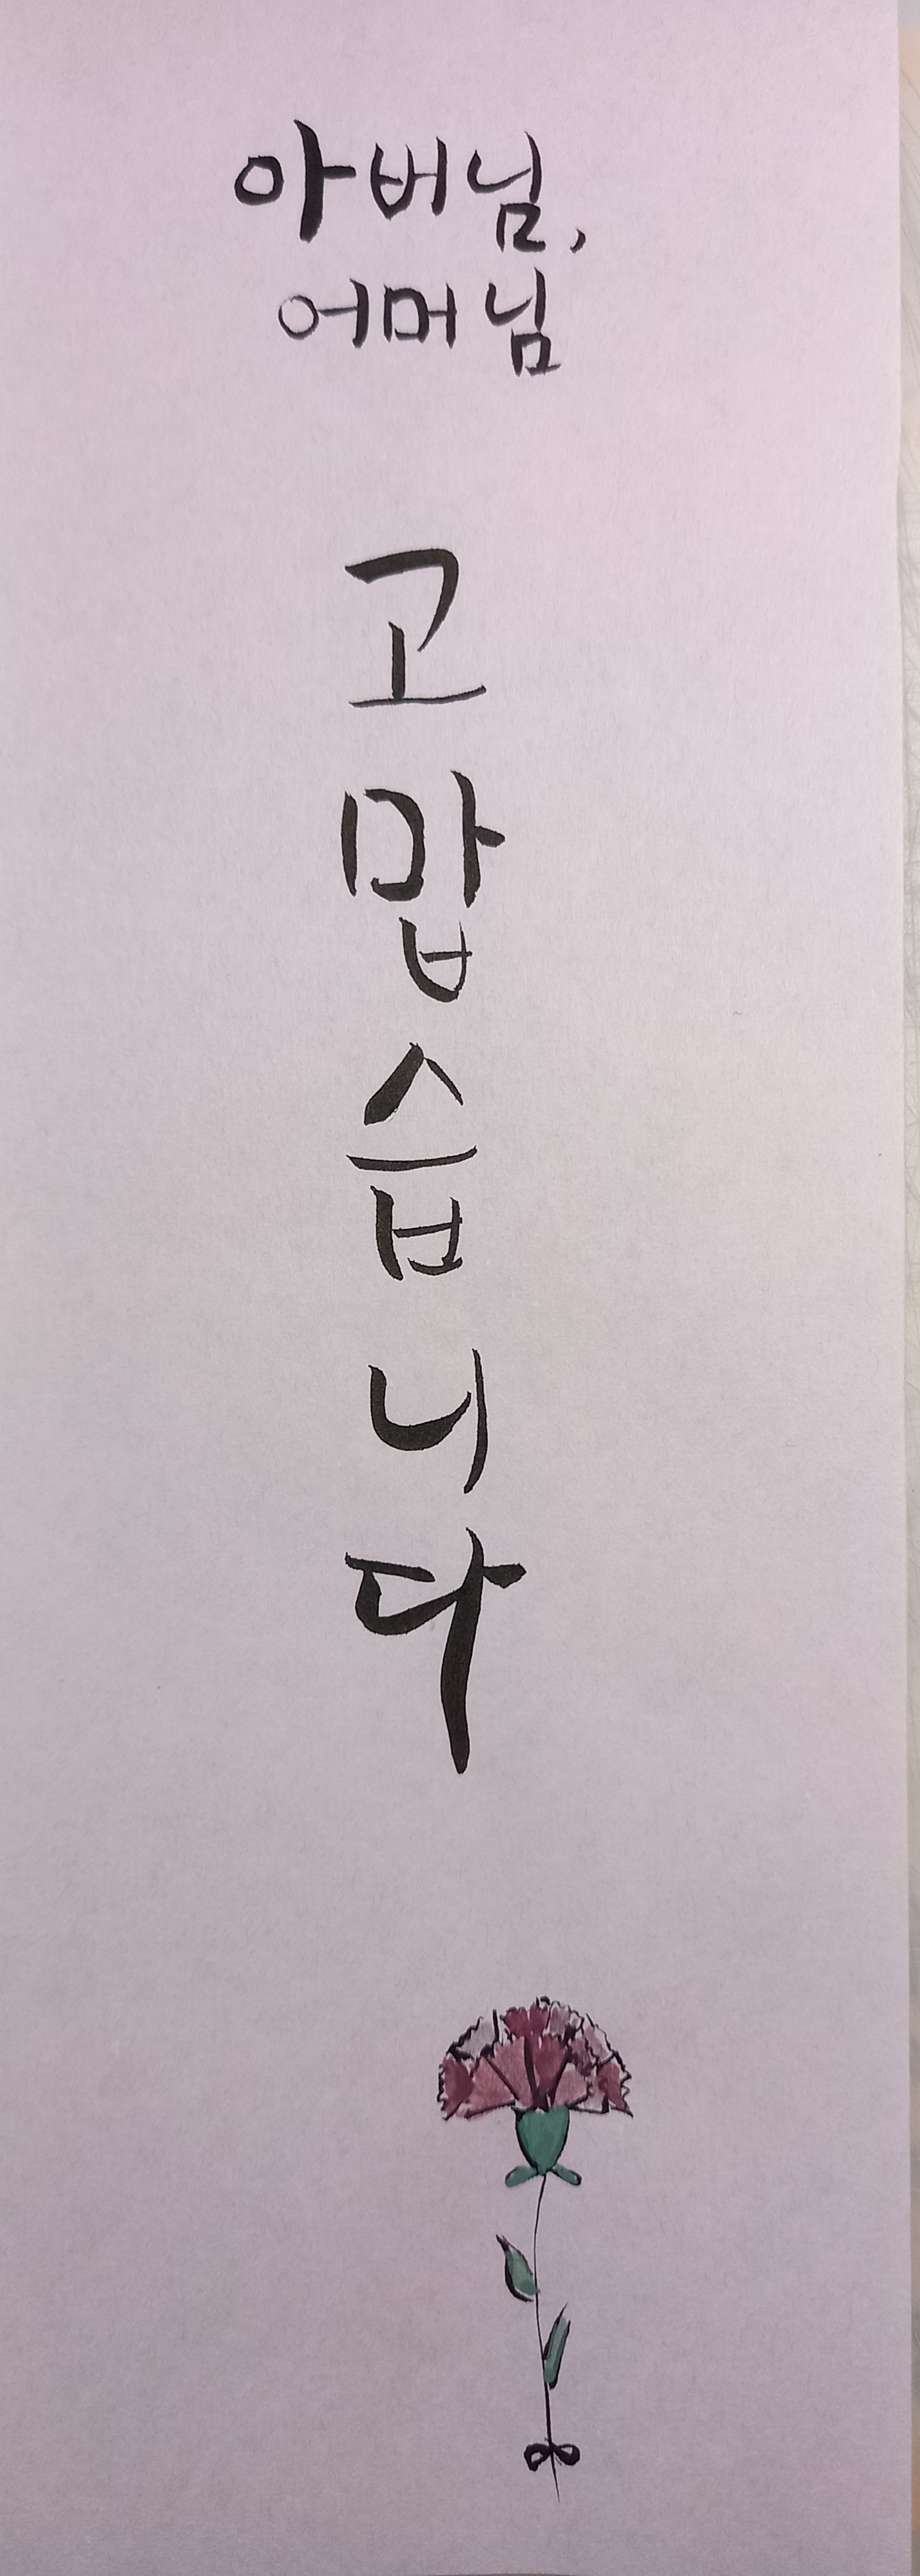 아버님,
어머님
고
맙
습
니
다